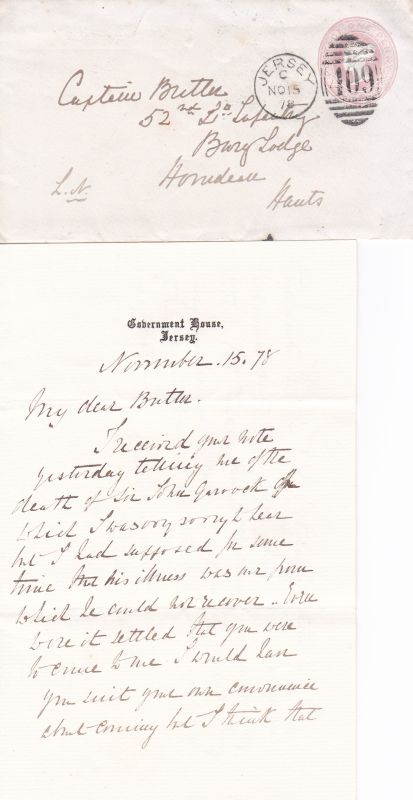 Captain Butler
52nd Lt Infantry
Bury Lodge
Horndean
Hants
L.N.
JERSEY
C
NO 15
78
409
Government House,
Jersey.
November. 15. 78
My dear Butler.
I received your note
yesterday telling me of the
death of Sir John Garvock of
which I was very sorry to hear
but I had supposed for some
time that his illness was one from
which he could not recover.. Even
were it settled that you were
to come to me I would have
you suit your own convenience
about coming but I think that